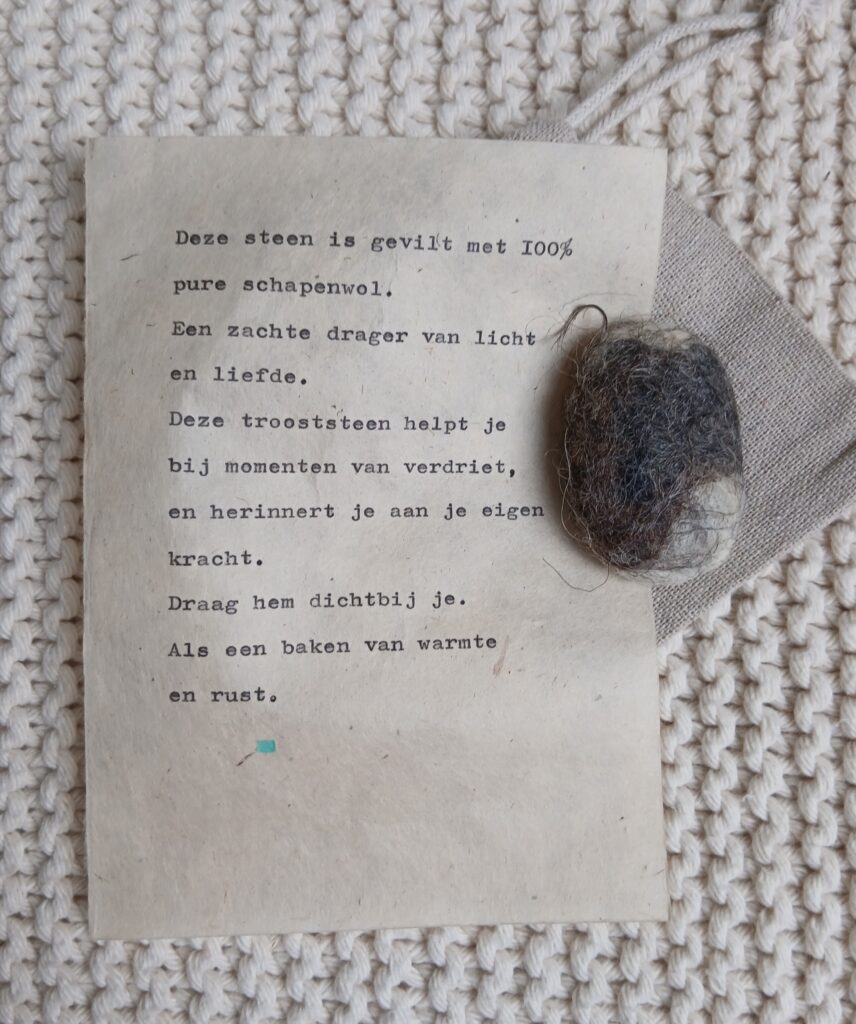 Deze steen is gevilt met 100%
pure schapenwol.
Een zachte drager van licht
en liefde.
Deze trooststeen helpt je
bij momenten van verdriet,
en herinnert je aan je eigen
kracht.
Draag hem dichtbij je.
Als een baken van warmte
en rust.